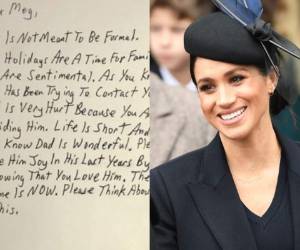 ox Meg,
Is Not Meant To Be Formal.
Holidays Are A Time For Fami
Are Sentimental. As You Kn
Has Been Trying To Contact Yo
is Very Hurt Because You A
iding Him. Life Is Short And
Know Dad Is Wonderful. Ple
e Him Joy In His Last Years By
owing That You Love Him. The
me Is NOW. Please Think Abou
his.